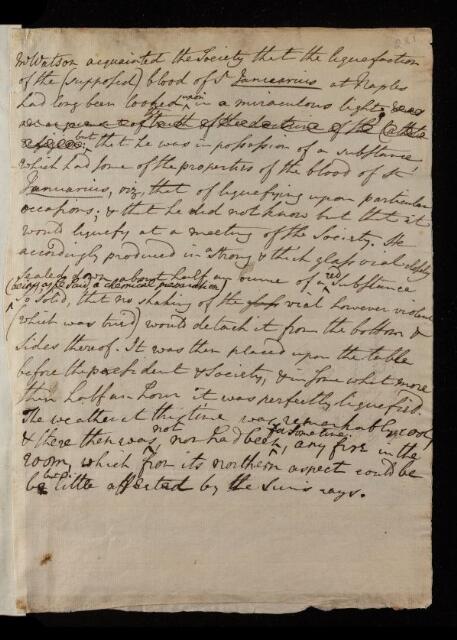 221
Mr Watson acquainted the Society that the liquefaction
of the (supposed) blood of St Januarius at Naples
had long been looked upon in a miraculous light,
of the truth of the doctrine of the
but that he was in possession of a substance
which had some of the properties of the blood of St
Januarius, viz, that of liquefying upon particular
occasions; & that he did not know but that it
would liquefy at a meeting of the Society. He
accordingly produced in a strong & thick glass vial closely
sealed down about half an ounce of a red substance
a chemical preparation)
so solid, that no shaking of the glass vial however violent
(which was tried) would detach it from the bottom &
sides thereof. It was then placed upon the table
before the president & Society, & in somewhat more
than half an hour it was perfectly liquefied.
The weather at this time was remarkably cool,
& there then was not nor had been for some time, any fire in the
room, which from its northern aspect could be
but little affected by the Sun's rays.